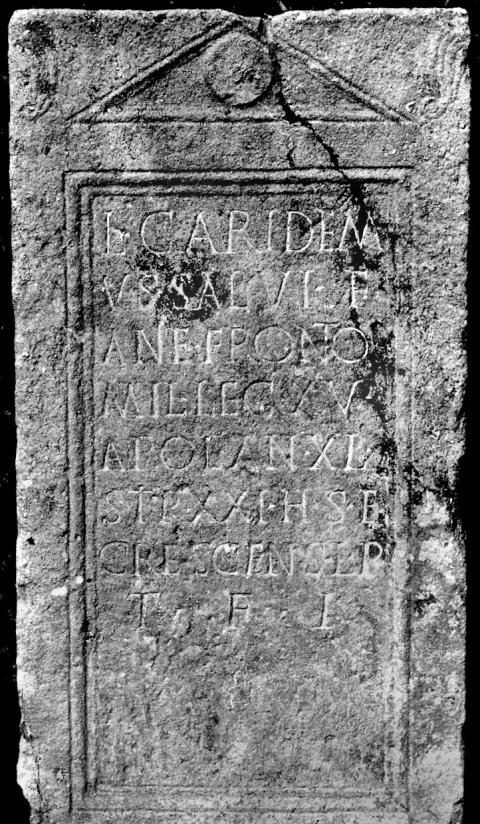 L·CARIDEM
VS·SALVI·F
ANE·FRONO
MIL·LEG·XV
APOL·AN·XL
STP·XXI·H·S·E
CRESCENS
T · F · I